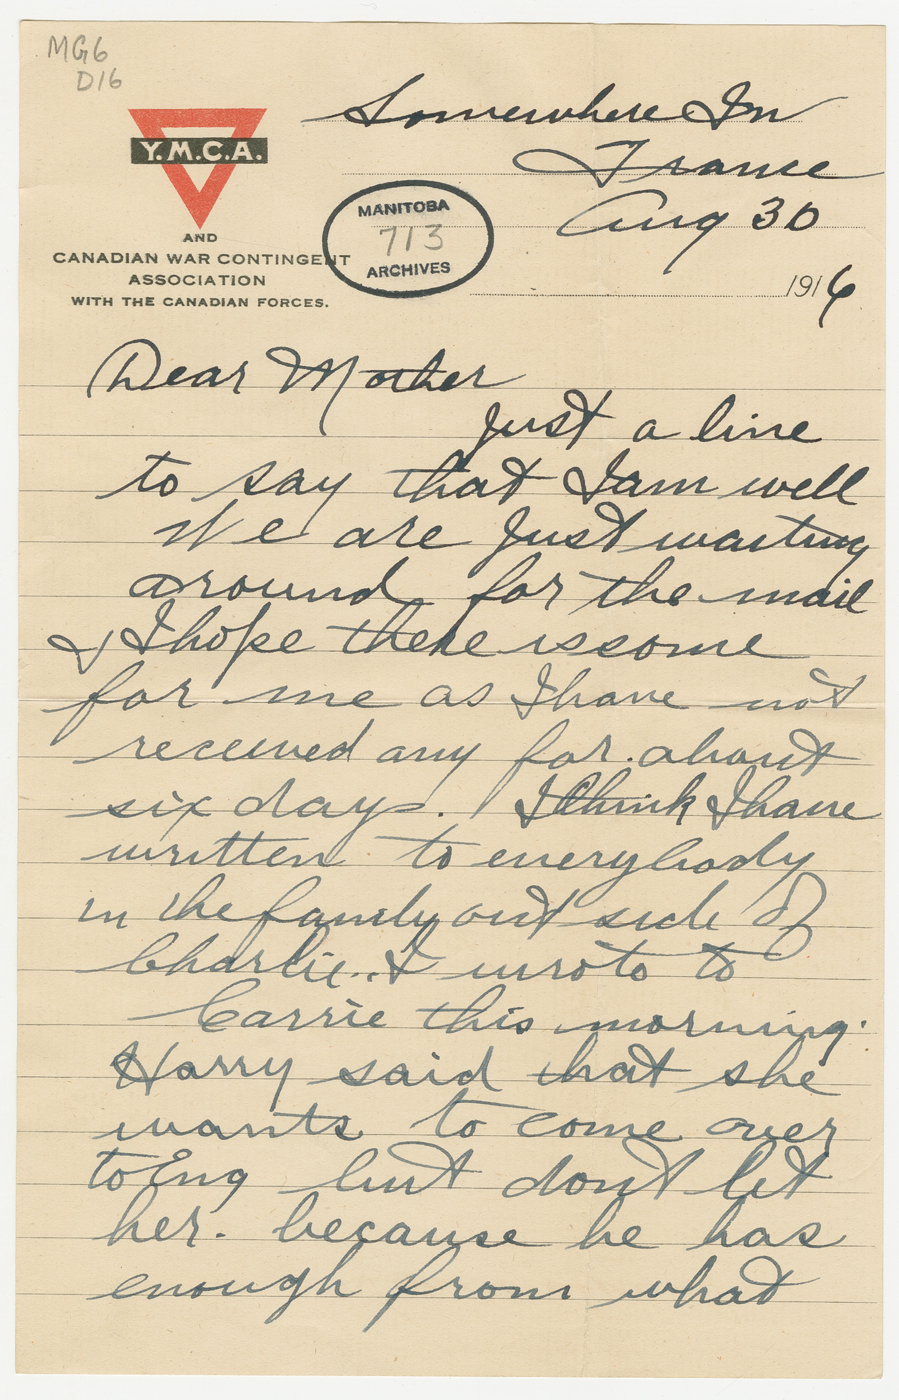 MG6
D16
Y.M.C.A.
AND
CANADIAN WAR CONTINGENT
ASSOCIATION
WITH THE CANADIAN FORCES.
MANITOBA
713
ARCHIVES
Somewhere In
France
Aug 30
1916
Dear Mother
Just a line
to say that I am well
We are just waiting
around for the mail
& I hope there is some
for me as I have not
received any for about
six days. I think I have
written to everybody
in the family out side of
Charlie. & I wrote to
Carrie this morning.
Harry said that she
wants to come over
to Eng but dont let
her. because he has
enough from what